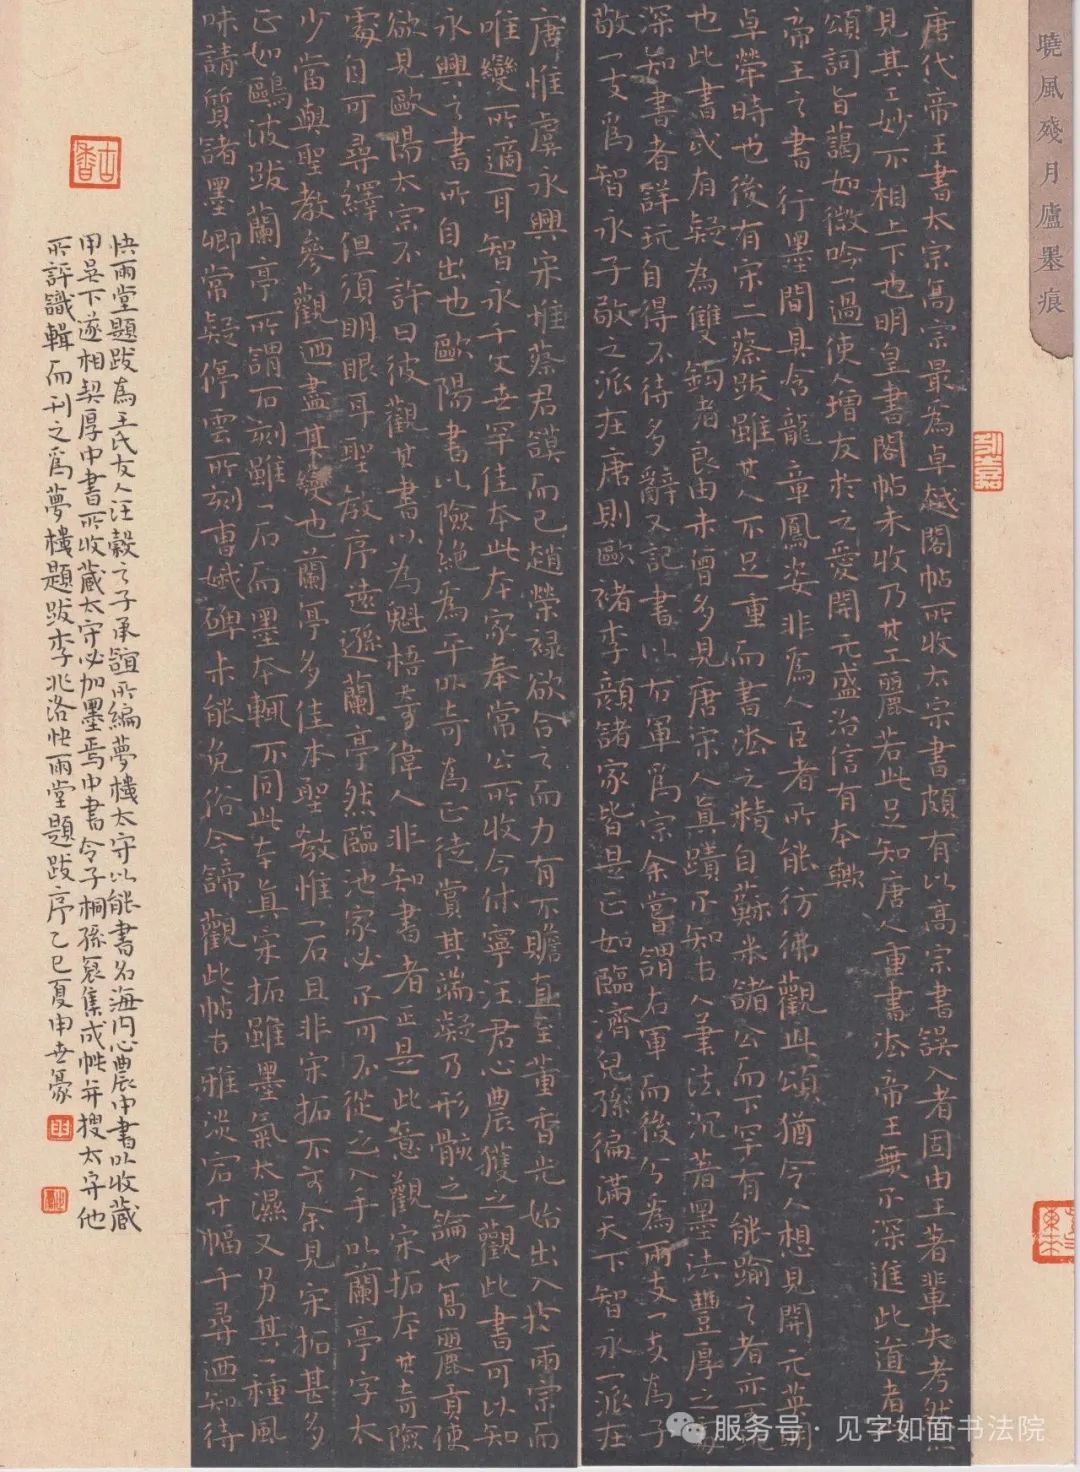 曉風殘月廬墨痕
唐代帝王書太宗高宗最為卓越閣帖所收太宗書頗有以高宗書誤入者固由王著輩失考然
見其工妙不相上下也明皇書閣帖未收乃其工麗若此足知唐人重書法帝王無不深進此道者
頌詞旨藹如微吟一過使人增友於之愛開元盛治信有本歟
帝王之書行墨間具含龍章鳳姿非為人臣者所能彷彿觀此頌猶令人想見開元英明
卓犖時也後有宋二蔡跋雖其人不足重而書法之精自蘇米諸公而下罕有能踰之者亦
也此書或有疑為雙鉤者良由未曾多見唐宋人真蹟不知古人筆法沉著墨法豐厚之
深知書者詳玩自得不待多辭又記書以右軍為宗余嘗謂右軍而後分為兩支一支為子
敬一支為智永子敬之派在唐則歐褚李顏諸家皆是正如臨濟兒孫徧滿天下智永一派在
唐惟虞永興宋惟蔡君謨而已趙榮祿欲合之而力有不贍直至董香光始出入於兩宗而
唯變所適耳智永千文世罕佳本此本家奉常公所收今休寧汪君心農獲之觀此書可以知
永興之書所自出也歐陽書以險絕為平以奇為正徒賞其端凝乃形骸之論也高麗貢使
欲見歐陽太宗不許曰彼觀其書以為魁梧奇偉人非知書者正是此意觀宋拓本其奇險
處自可尋繹但須明眼耳聖教序遠遜蘭亭然臨池家必不可不從之入手以蘭亭字太
少當與聖教參觀迺盡其變也蘭亭多佳本聖教惟一石且非宋拓不可余見宋拓甚多
正如鷗波跋蘭亭所謂石刻雖一石而墨本輒不同此本真宋拓雖墨氣太濕又另其一種風
味請質諸墨卿常疑停雲所刻曹娥碑未能免俗今諦觀此帖古雅淡宕寸幅千尋迺知待
快雨堂題跋為王氏友人汪穀之子承誼所編夢樓太守以能書名海內心農中書以收藏
甲吳下遂相契厚中書所收藏太守必加墨焉中書令子桐孫裒集成帙并搜太守他
所評識輯而刊之為夢樓題跋李兆洛快雨堂題跋序乙巳夏申世豪
服务号·见字如面书法院